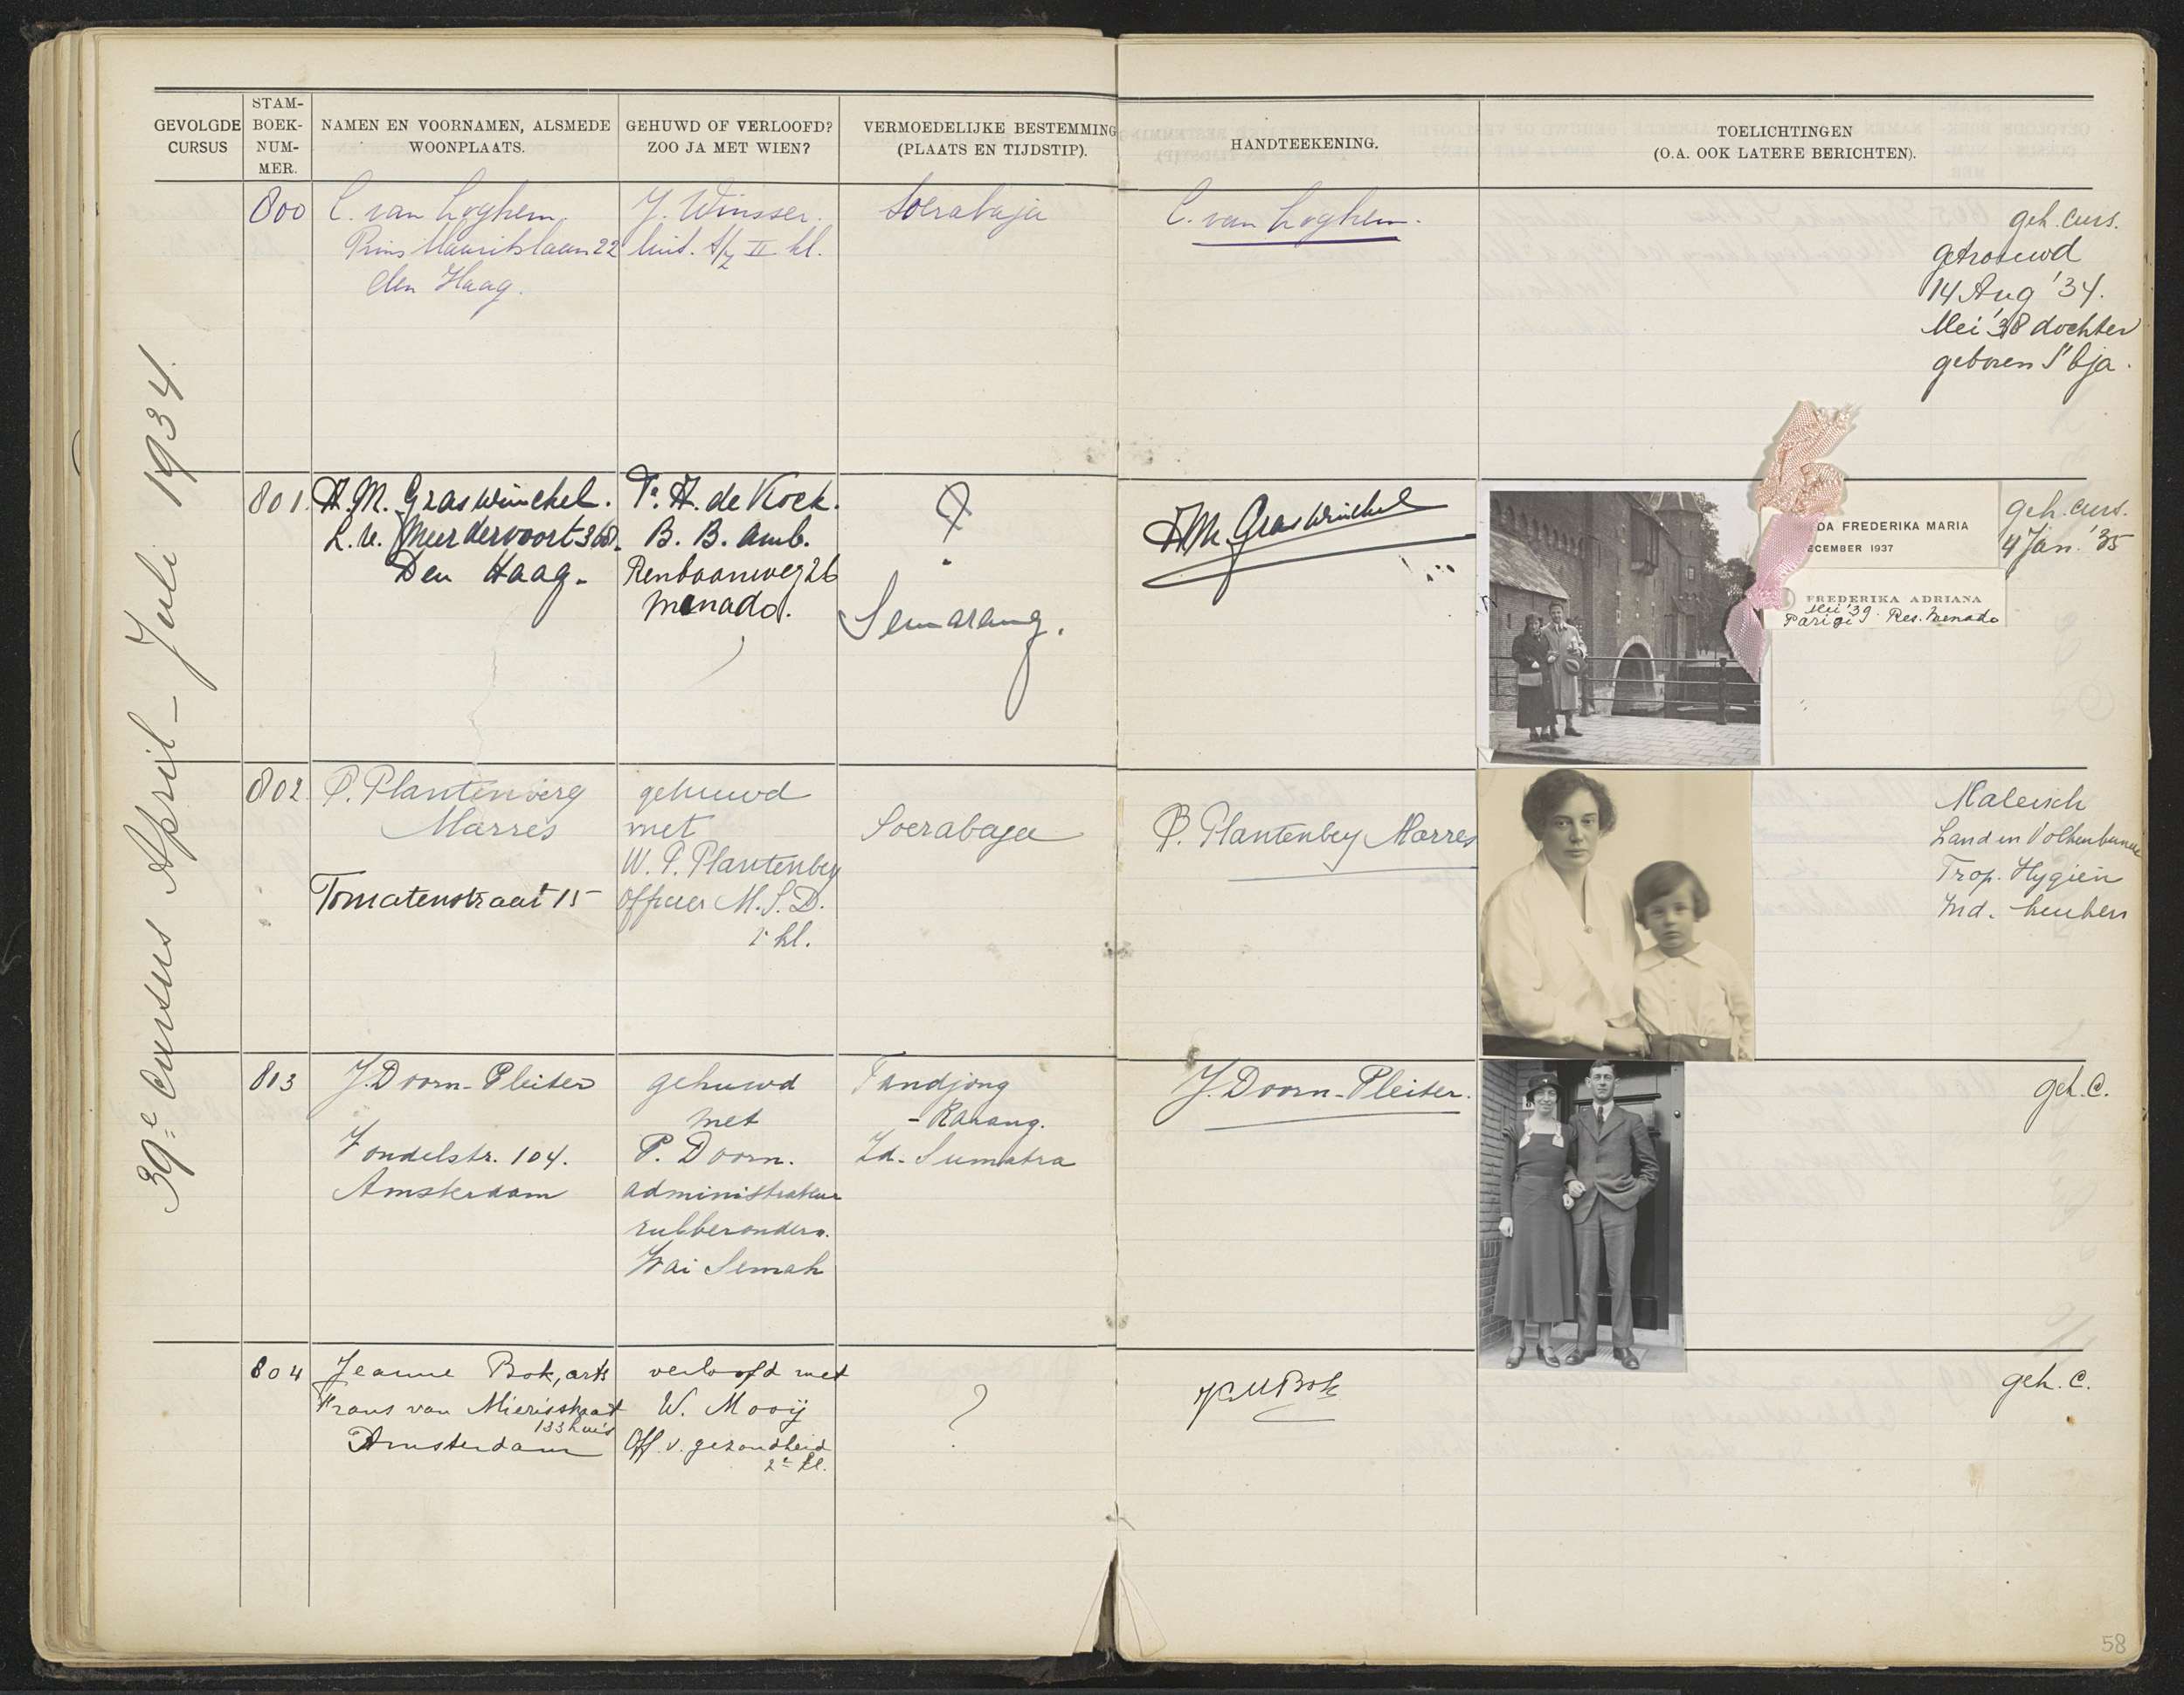 GEVOLGDE CURSUS
STAM-BOEK-NUM-MER.
NAMEN EN VOORNAMEN, ALSMEDE WOONPLAATS.
GEHUWD OF VERLOOFD? ZOO JA MET WIEN?
VERMOEDELIJKE BESTEMMING (PLAATS EN TIJDSTIP).
HANDTEEKENING.
TOELICHTINGEN (O.A. OOK LATERE BERICHTEN).
39e Cursus April - Juli 1934
800
C. van Loghem
Prins Mauritslaan 22
den Haag.
J. Winsser.
luit. t/z II kl.
Soerabaja
C. van Loghem.
geh. curs.
getrouwd
14 Aug '34.
Mei '38 dochter
geboren S'bja.
801.
A.M. Graswinckel.
L. v. Meerdervoort 368.
Den Haag.
A. de Kock.
B. B. amb.
Renbaanweg 26
Menado.
?
Semarang.
AM. Graswinckel
DA FREDERIKA MARIA
ECEMBER 1937
FREDERIKA ADRIANA
Mei '39.
Parigi Res. Menado
geh. curs.
4 Jan. '35
802.
P. Plantenberg
Marres
Tomatenstraat 15
gehuwd
met
W. P. Plantenberg
Officier M.S.D.
1e kl.
Soerabaja
P. Plantenberg Marres
Maleisch
Land en Volkenkunde
Trop. Hygiën
Ind. keuken
813
J. Doorn-Pleiter
Vondelstr. 104.
Amsterdam
gehuwd
met
P. Doorn.
administrateur
rubberondern.
Wai Semah
Tandjong
-Karang.
Zd. Sumatra
J. Doorn-Pleiter.
geh. C.
804
Jeanne Bok, arts
Frans van Mierisstraat
133 huis
Amsterdam
verloofd met
W. Mooij
Off. v. gezondheid
2e kl.
?
Bok
geh. C.
58